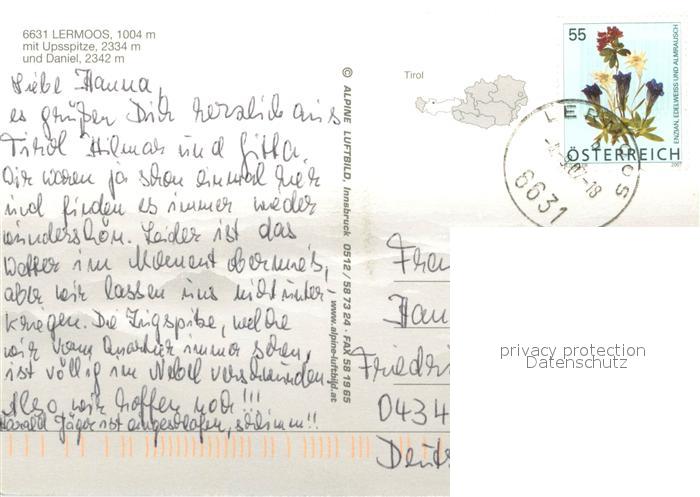 6631 LERMOOS, 1004 m
mit Upsspitze, 2334 m
und Daniel, 2342 m
Liebe Hanna,
es grüßen Dich herzlich aus
Tirol Hilmar und Gitta.
Wir waren ja schon einmal hier
und finden es immer wieder
wunderschön. Leider ist das
Wetter im Moment obermies,
aber wir lassen uns nicht unter-
kriegen. Die Zugspitze, welche
wir vom Quartier immer sehen,
ist völlig im Nebel verschwunden.
Also wir hoffen noch!!!
Harald Jäger ist eingeschlafen, schlimm!!
© ALPINE LUFTBILD, Innsbruck 0512 / 58 73 24 · FAX 58 19 65
www.alpine-luftbild.at
Tirol
55
ENZIAN, EDELWEISS UND ALMRAUSCH
ÖSTERREICH
2007
LERMOOS
07-18
6631
Frau
Han
Friedri
0434
Deuts
privacy protection
Datenschutz